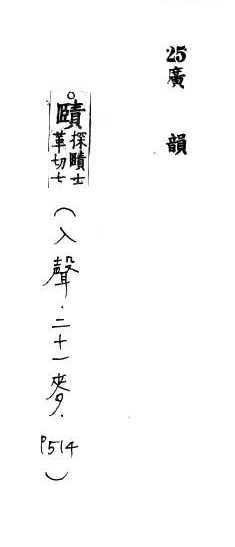 25廣韻
○賾探賾士革切七
(入聲.二十一麥.P514)